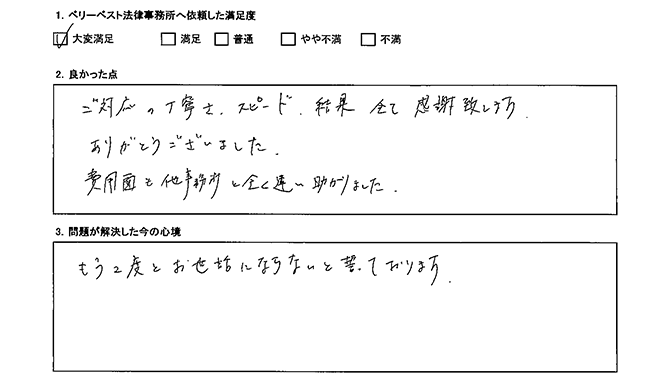 1. ベリーベスト法律事務所へ依頼した満足度
大変満足 満足 普通 やや不満 不満
2. 良かった点
ご対応の丁寧さ、スピード、結果 全て 感謝致します.
ありがとうございました.
費用面も他事務所と全く違い助かりました.
3. 問題が解決した今の心境
もう2度とお世話にならないと誓っております.